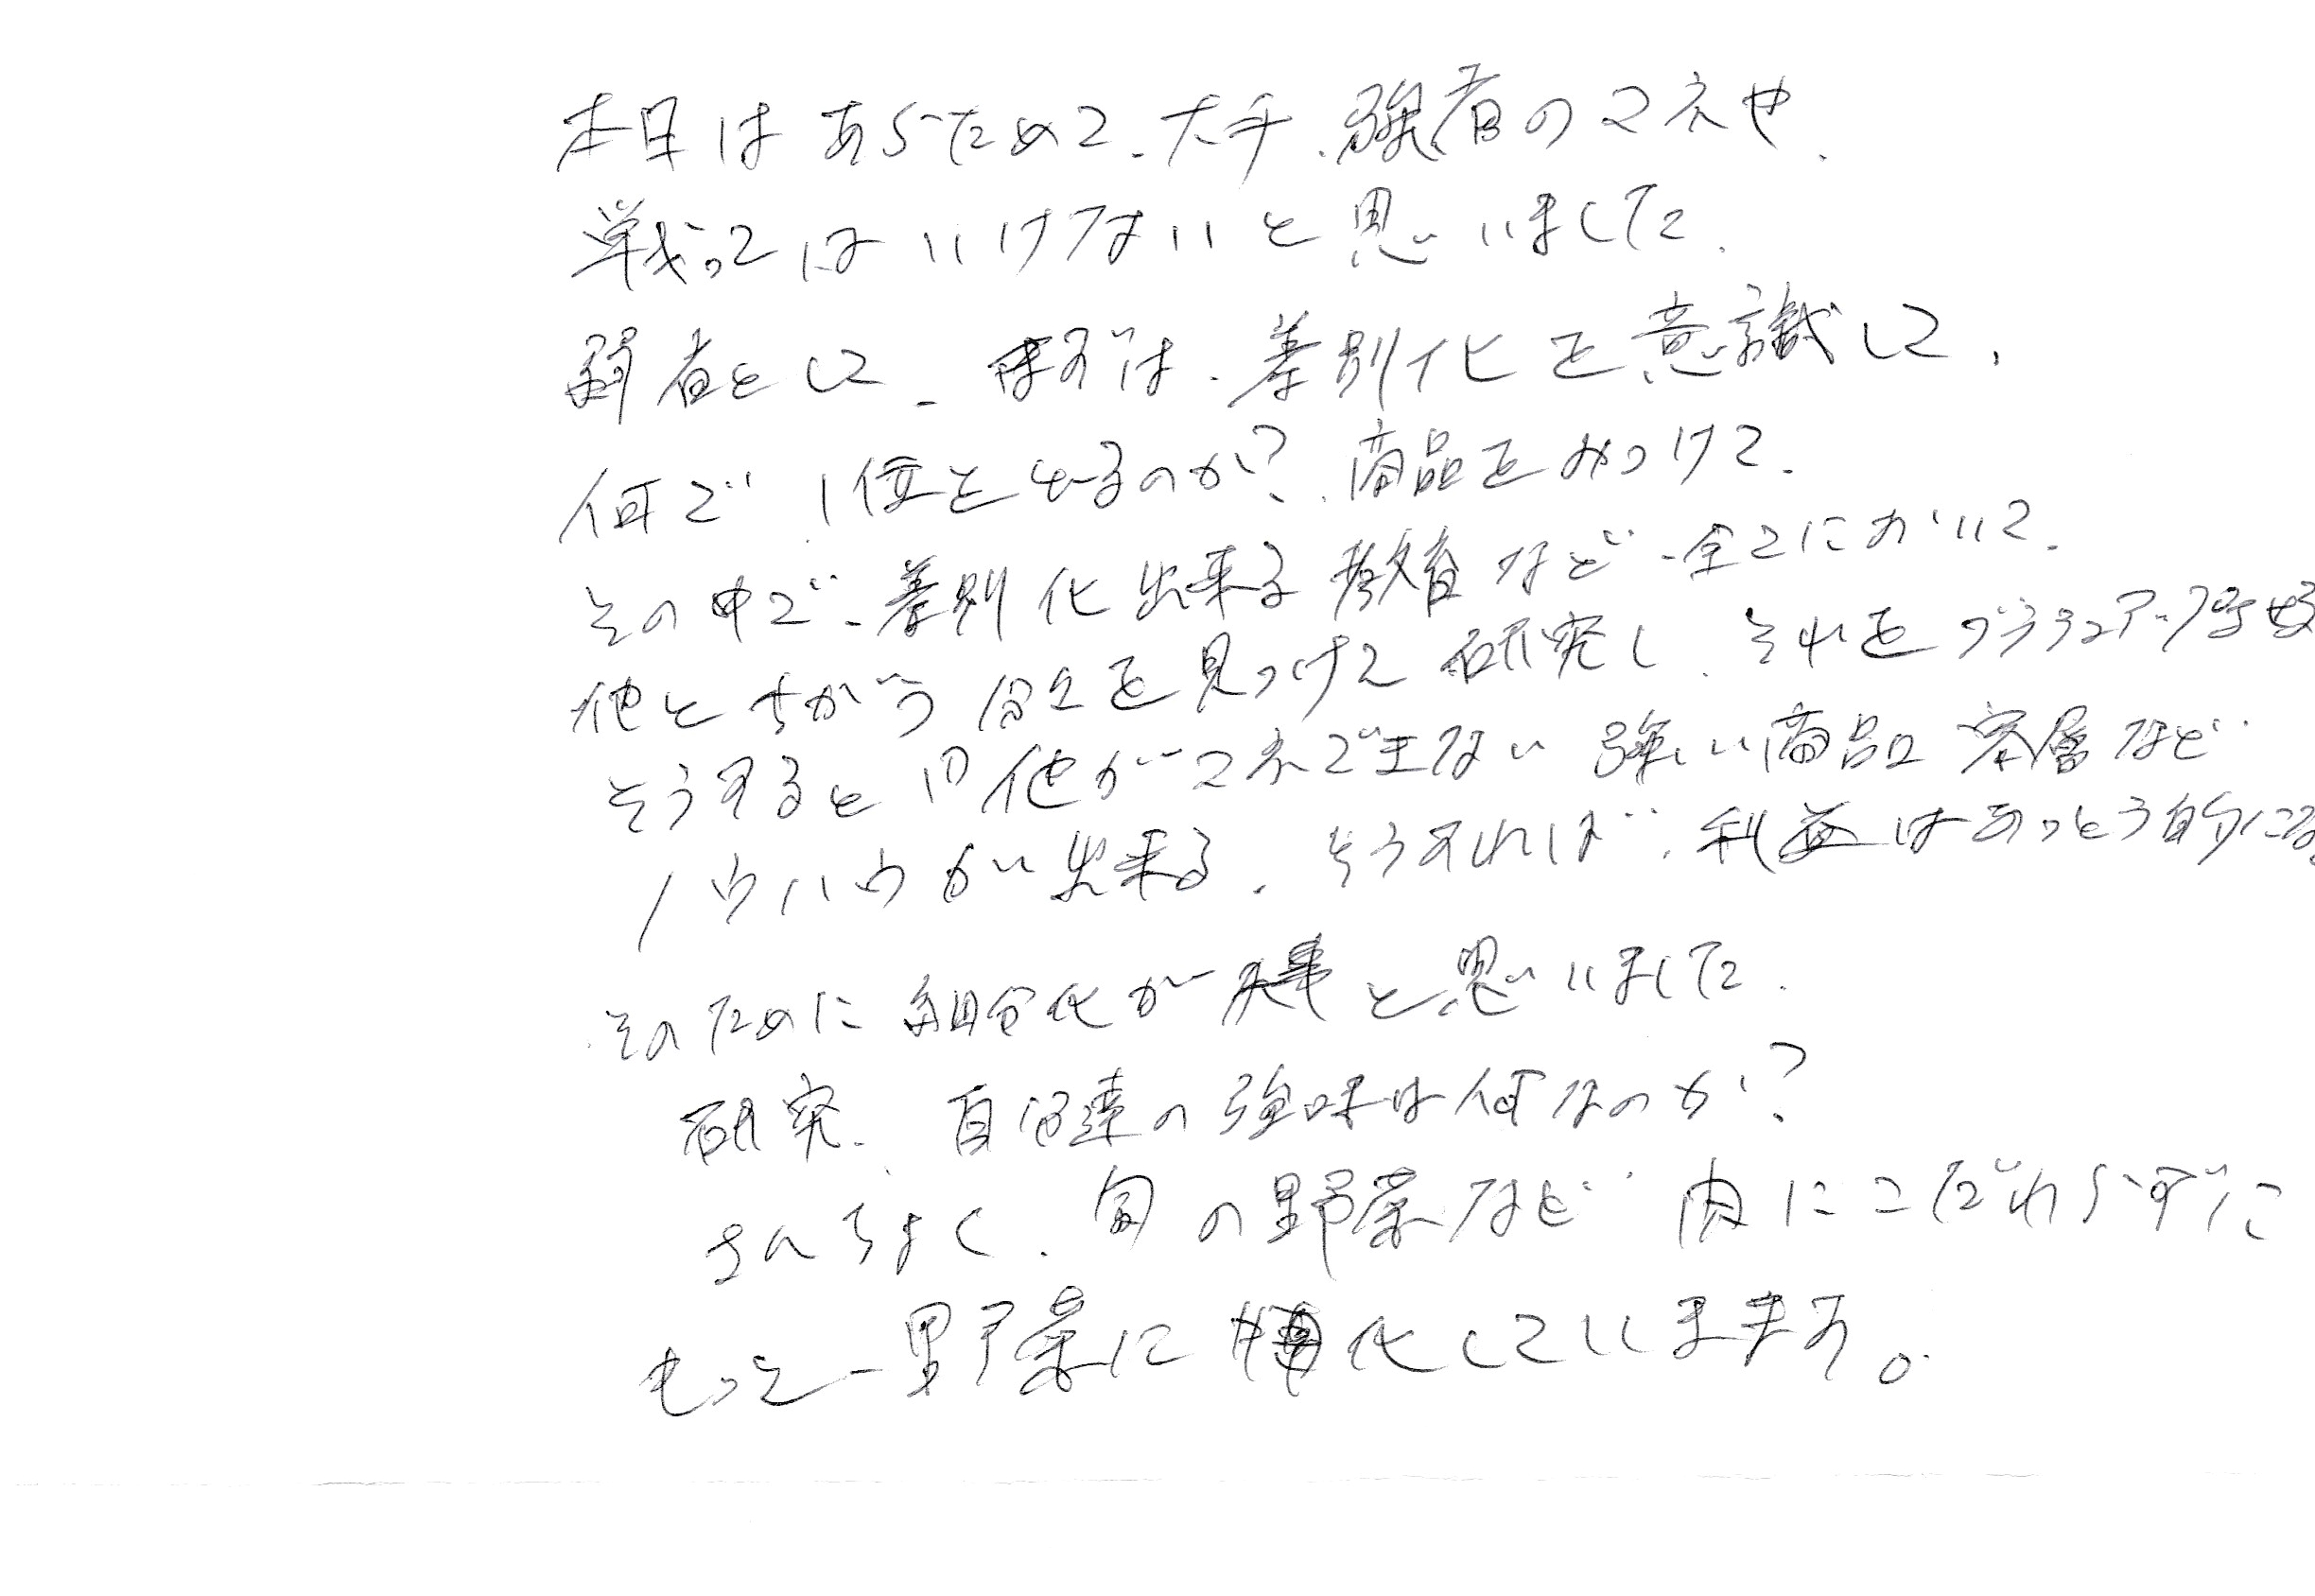 本日はあらためて、大手、強者のマネや、
戦ってはいけないと思いました。
弱者として、まずは、差別化を意識して、
何で1位をとるのか?商品をみつけて、
その中で、差別化出来る教育など、全てにおいて、
他とちがう 所を見つけて研究し、それをブラッシュアップさせる
そうすると 他がマネできない強い商品 客層など
ノウハウが出来る。そうすれば、利益はあっとう的になる
そのために 細分化が大事と思いました。
研究、自分達の強味は何なのか?
さんちょく、旬の野菜など 肉にこだわらずに
もっと野菜に 化していきます。